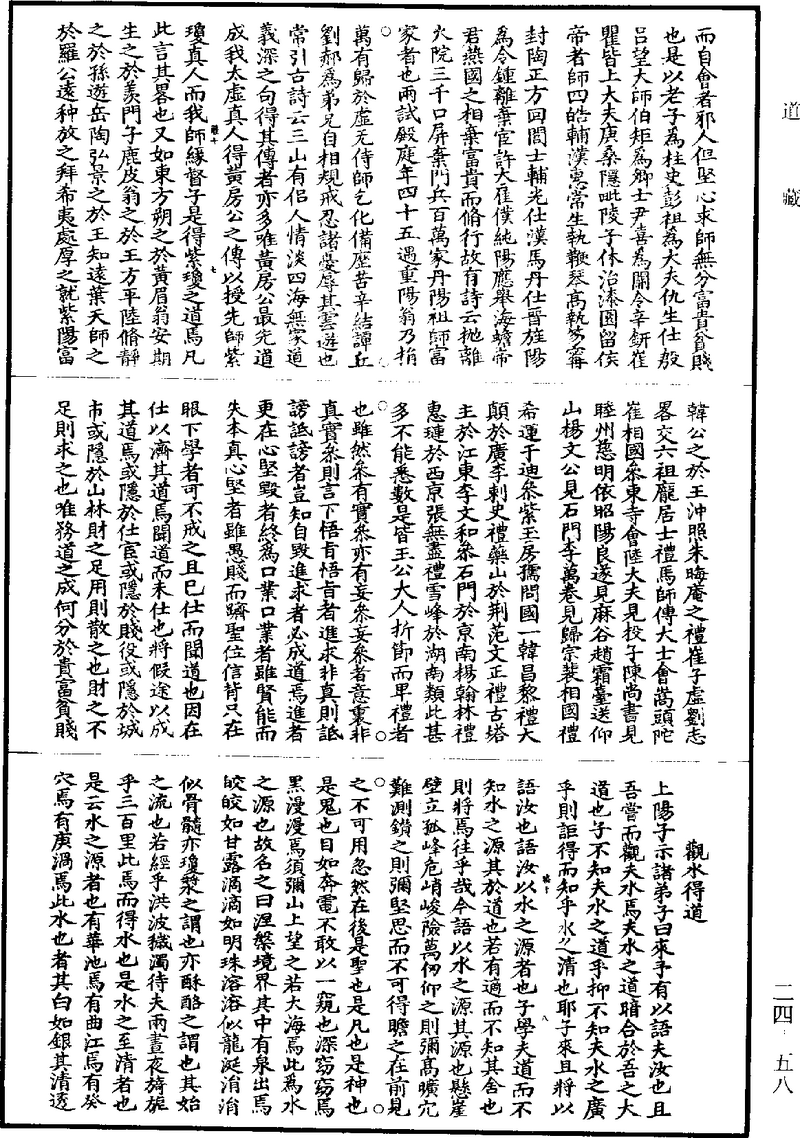 道藏
二四‧五八
而自會者邪人但堅心求師無分富貴貧賤
也是以老子為柱史彭祖為大夫仇生仕殷
呂望大師伯矩為卿士尹喜為關令辛鈃崔
瞿皆上大夫庚桑隱毗陵子休治漆園留侯
帝者師四皓輔漢惠常生執鞭琴高執笏甯
封陶正方回閭士輔光仕漢馬丹仕晉旌陽
為令鍾離棄官許大隹僕純陽應舉海蟾帝
君燕國之相棄富貴而脩行故有詩云抛離
火院三千口屏棄門兵百萬家丹陽祖師富
家者也兩試殿庭年四十五遇重陽翁乃捐
萬有歸於虛无侍師乞化備歷苦辛結譚丘
劉郝為弟兄自相規戒忍諸憂辱其雲遊也
常引古詩云三山有侶人情淡四海無家道
義深之句得其傳者亦多唯黃房公最先道
成我太虛真人得黃房公之傳以授先師紫
瓊真人而我師緣督子是得紫瓊之道焉凡
此言其畧也又如東方朔之於黃眉翁安期
生之於羨門子鹿皮翁之於王方平陸脩靜
之於孫遊岳陶弘景之於王知遠葉天師之
於羅公遠种放之拜希夷處厚之就紫陽富
韓公之於王沖照朱晦庵之禮崔子虛劉志
畧交六祖龐居士禮馬師傅大士會嵩頭陀
崔相國參東寺會陸大夫見投子陳尚書見
睦州慈明依昭陽良遂見麻谷趙霜臺送仰
山楊文公見石門李萬卷見歸宗裴相國禮
希運于迪參紫玉房孺問國一韓昌黎禮大
顛於廣李刺史禮藥山於荆范文正禮古塔
主於江東李文和參石門於京南楊翰林禮
惠璉於西京張無盡禮雪峰於湖南類此甚
多不能悉數是皆王公大人折節而卑禮者
也雖然參有實參亦有妄參妄參者意裏非
真實參則言下悟肯悟肯者進求非真則詆
謗詆謗者豈知自毀進求者必成道焉進者
更在心堅毀者終為口業口業者雖賢能而
失本真心堅者雖愚賤而躋聖位信背只在
眼下學者可不戒之且巳仕而聞道也因在
仕以濟其道焉聞道而未仕也將假途以成
其道焉或隱於仕宦或隱於賤役或隱於城
市或隱於山林財之足用則散之也財之不
足則求之也唯務道之成何分於貴富貧賤
觀水得道
上陽子示諸弟子曰來乎有以語夫汝也且
吾嘗而觀夫水焉夫水之道暗合於吾之大
道也子不知夫水之道乎抑不知夫水之廣
乎則詎得而知乎水之清也耶子來且將以
語汝也語汝以水之源者也子學夫道而不
知水之源其於道也若有適而不知其舍也
則將焉往乎哉今語以水之源其源也懸崖
壁立孤峰危峭峻險萬仞仰之則彌高曠穴
難測鑽之則彌堅思而不可得瞻之在前見
之不可用忽然在後是聖也是凡也是神也
是鬼也目如奔電不敢以一窺也深窈窈焉
黑漫漫焉須彌山上望之若大海焉此為水
之源也故名之曰涅槃境界其中有泉出焉
皎皎如甘露滴滴如明珠溶溶似龍涎涓涓
似骨髓亦瓊漿之謂也亦酥酪之謂也其始
之流也若經乎洪波穢濁待夫兩晝夜旖旎
乎三百里此焉而得水也是水之至清者也
是云水之源者也有華池焉有曲江焉有癸
穴焉有庚渦焉此水也者其白如銀其清透